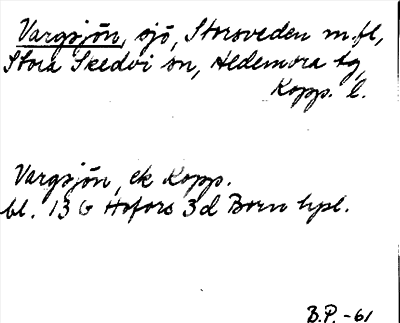 Vargsjön, sjö, Storsveden m.fl,
Stora Skedvi sn, Hedemora tg,
Kopp. l.
Vargsjön, ek Kopp.
bl. 13 G Hofors 3d Born hpl.
B.P. -61